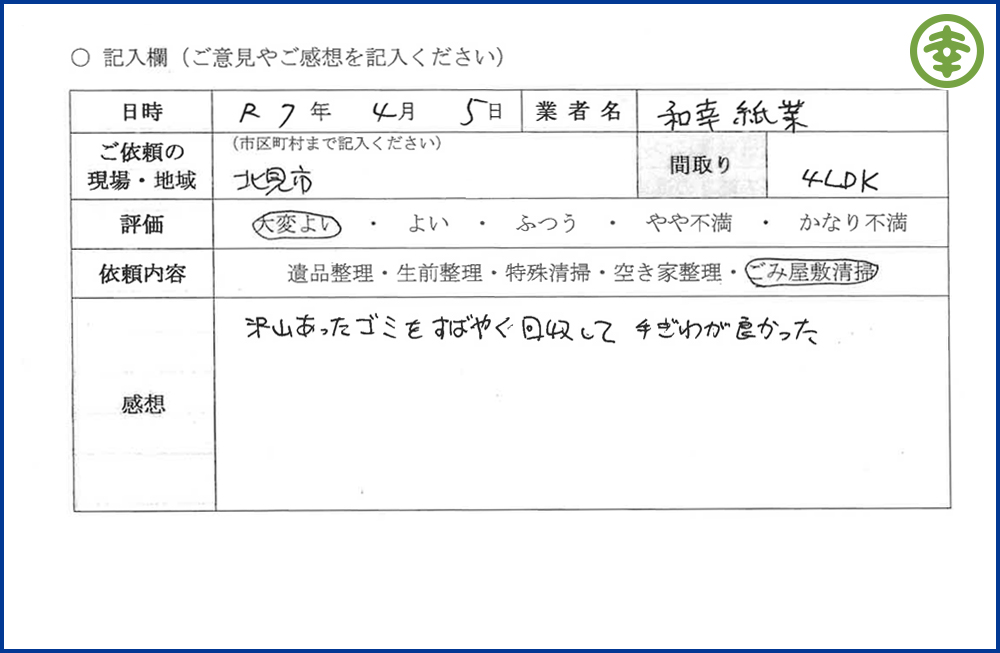 幸
○ 記入欄（ご意見やご感想を記入ください）
日時 R 7 年 4月 5日 業者名 和幸紙業
ご依頼の現場・地域 （市区町村まで記入ください） 北見市 間取り 4LDK
評価 大変よい ・ よい ・ ふつう ・ やや不満 ・ かなり不満
依頼内容 遺品整理・生前整理・特殊清掃・空き家整理・ごみ屋敷清掃
感想 沢山あったゴミをすばやく回収して 手ぎわが良かった